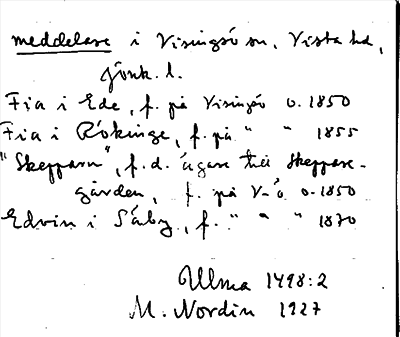 meddelare i Visingsö sn, Vista hd,
Jönk. l.
Fia i Ede, f. på Visingsö o. 1850
Fia i Rökinge, f. på " " 1855
"Skepparn", f.d. ägare till Skeppare-
gården, f. på V-ö o. 1850
Edvin i Säby, f. " " " 1870
Ulma 1498:2
M. Nordin 1927